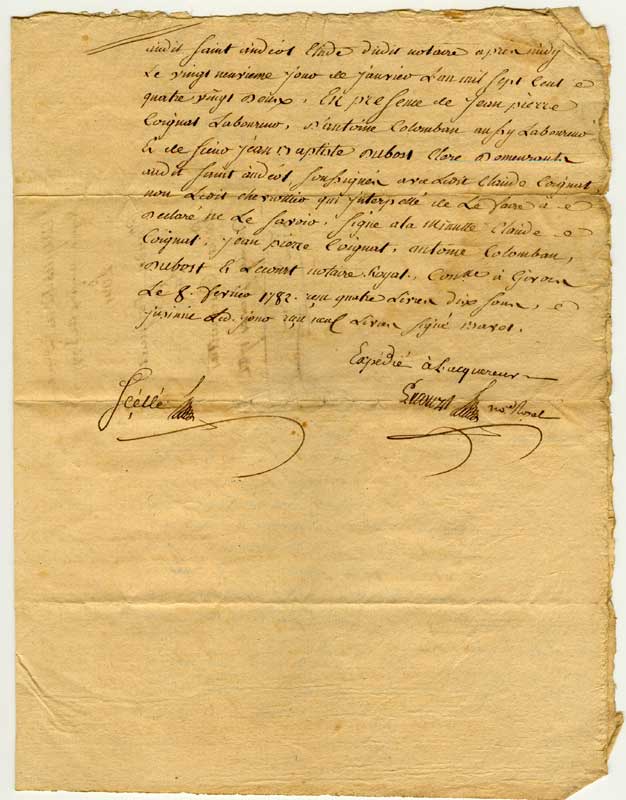 audit saint andéol Etude dudit notaire apres midy
Le vingt neuvieme jour de janvier L'an mil sept Cent e
quatre vingt Deux, En presence de jean pierre
Coignat Laboureur, D'antoine Colomban aussy Laboureur
& de sieur jean Baptiste Dubost Clerc Demeurants
audit saint andéol soussignés avec Ledit Claude Coignat
non Ledit qui interpellé de Le faire a e
Declaré ne Le savoir, signé a la minutte Claude e
Coignat, jean pierre Coignat, antoine Colomban,
Dubost & notaire Royal, Conlle à Givors
Le 8. fevrier 1782. reçu quatre Livres Dix sous, e
Led. jour reçu neuf Livres signé
Expédié à L'acquereur
Sçéllé